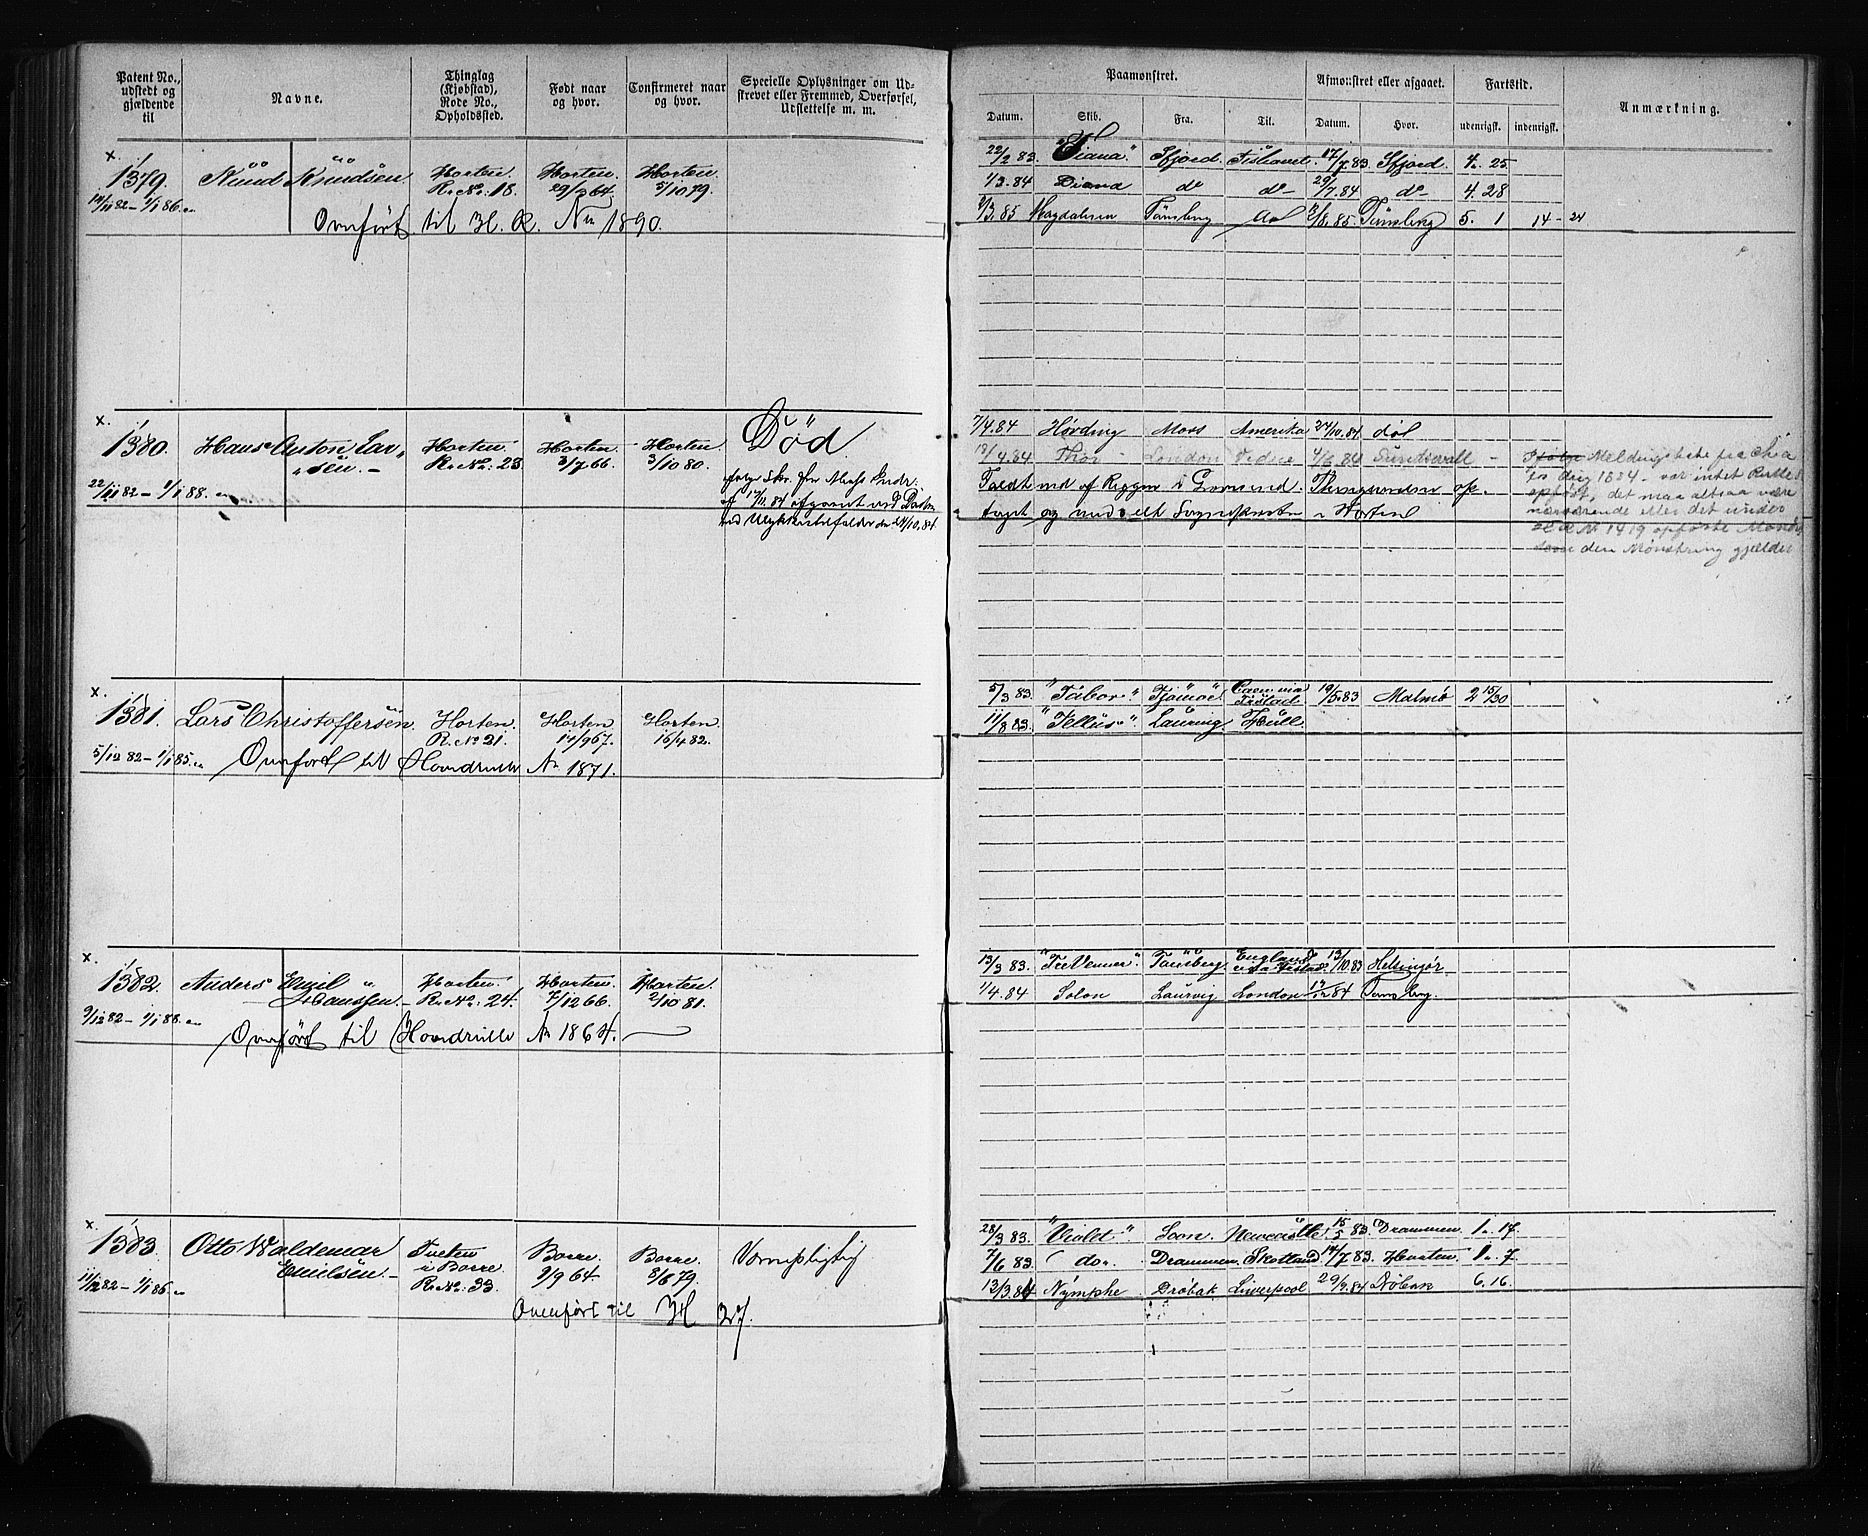 Patent No., udstedt og gjældende til
Navne.
Thinglag (Kjøbstad), Rode No., Opholdssted.
Født naar og hvor.
Confirmeret naar og hvor.
Specielle Oplysninger om Udskrevet eller Fremmed, Overførsel, Udslettelse m. m.
Paamønstret.
Afmønstret eller afgaaet.
Fartstid.
Anmærkning.
Datum.
Skib.
Fra.
Til.
Datum.
Hvor.
udenrigsk.
indenrigsk.
x.
1379. Knud Knudsen Horten. R. No. 18. Horten. 29/2 64. Horten. 5/10 79.
82 – 1/1 86.
Overført til H. R. No 1890.
22/2 83. "Diana" Sfjord. Ishavet. 17/7 83. Sfjord. 4. 25
1/3 84 Diana do do 29/7 84 do 4 28
/3 85 Magdalena Tønsberg /8. 85. Tønsberg 5. 1 14 - 24
x.
1380. Hans Anton Larsen. – Horten. R. No. 23. Horten. 3/7 66. Horten. 3/10 80. Død.
22/11 82 – 1/1 88.
7/4 84 Høvding Moss Amerika 24/10. 84 død
12/4. 84 Thor London 84 Sundsvall
Faldt ned af Riggen
taget og med i Horten
Meldingsliste fra
1884 – var intet
opført, det maa altsaa være
nærværende eller det under
No 1419 opførte
den Mønstring gjælder
x.
1381. Lars Christoffersen. Horten. R. No 21. Horten 14/9 67. Horten 16/4 82.
5/12 82 – 1/1 85.
Overført til Hovedrulle No 1871.
5/3 83. "Tabor" Tjømø Caen via 19/5. 83 Malmø 2 15/30
11/8 83. "Tellus". Laurvig. Hull.
x.
1382. Anders Emil Hanssen. Horten. R. No. 24. Horten. 7/12 66. Horten. 2/10 81.
9/12 82 – 1/1 88.
Overført til Hovedrulle No 1864.
13/3 83. "Tre Venner". Tønsberg. England via 13/10. 83 Helsingør
1/4. 84 Solon Laurvig. London 84 Tønsberg.
x.
1383. Otto Waldemar Emilsen. – Tveten i Borre. R. No. 33. Borre. 9/9 64. Borre. 8/6 79. Værnepligtig
11/12 82 – 1/1 86.
Overført til H 327.
28/3 83. "Violet" Soon. Newcastle. 15/5 83. Drammen. 1. 17.
7/6 83 do. Drammen. Skotland. 14/7 83. Horten. 1. 7.
13/3 84 Nymphe Drøbak Liverpool 29/9. 84 Drøbak 6. 16.